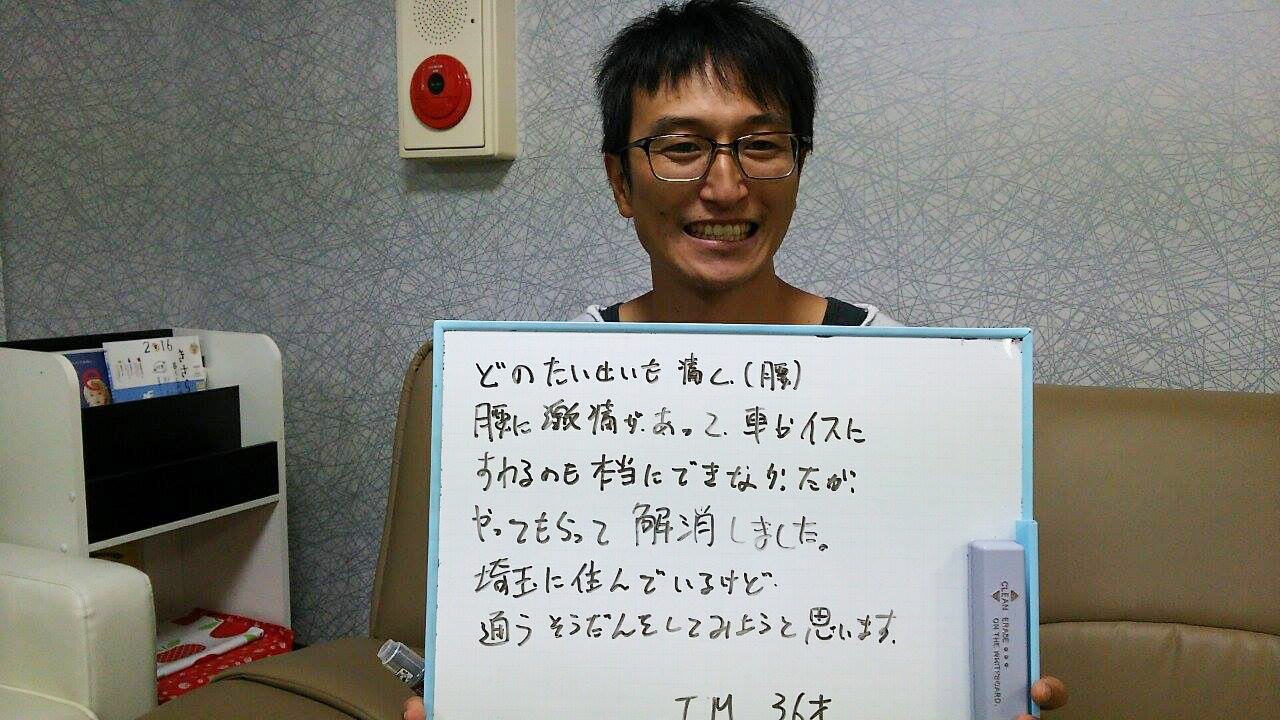 2016
どのたいせいも痛く、(腰)
腰に激痛があって、車やイスに
すわるのも本当にできなかったが
やってもらって解消しました。
埼玉に住んでいるけど
通うそうだんをしてみようと思います。
T M 36才
CLEAN ERASE
ON THE WHITEBOARD.